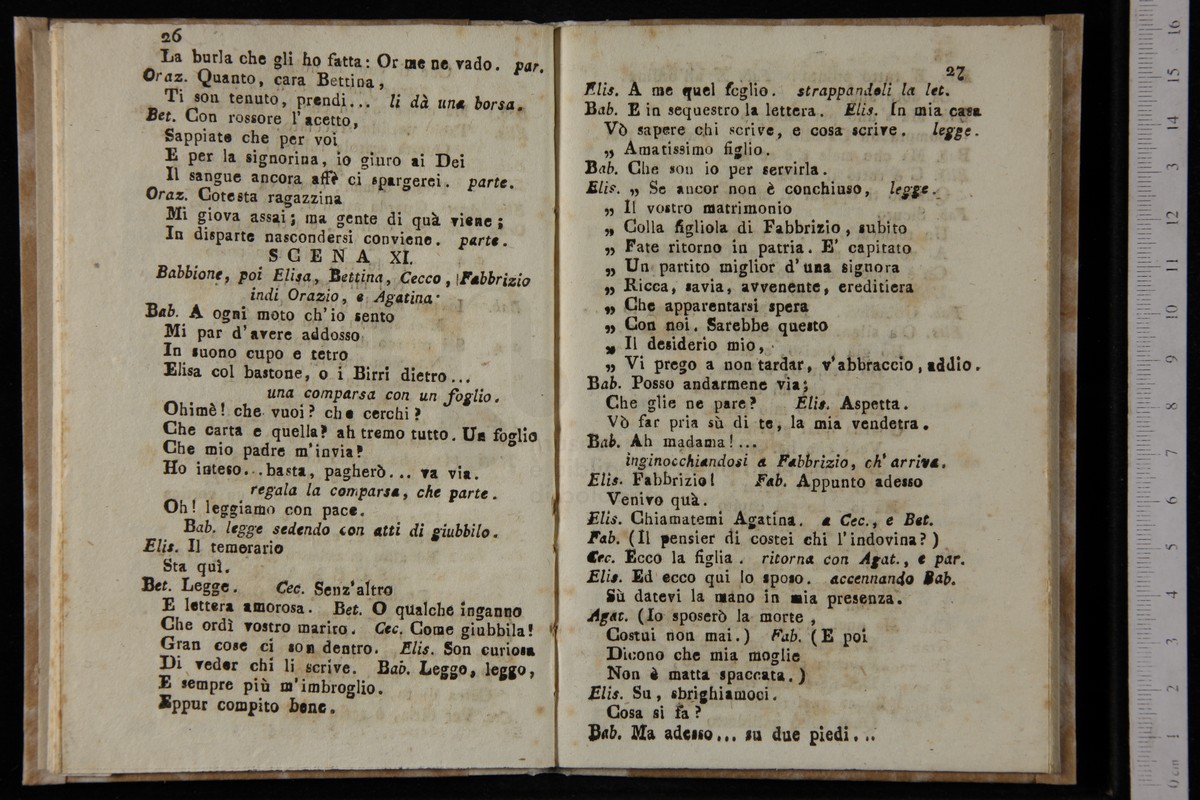 26
La burla che gli ho fatta: Or me ne vado. par.
Oraz. Quanto, cara Bettina,
Ti son tenuto, prendi... li dà una borsa.
Bet. Con rossore l'acetto,
Sappiate che per voi
E per la signorina, io giuro ai Dei
Il sangue ancora affè ci spargerei. parte.
Oraz. Cotesta ragazzina
Mi giova assai; ma gente di quà viene;
In disparte nascondersi conviene. parte.
SCENA XI.
Babbione, poi Elisa, Bettina, Cecco, Fabbrizio
indi Orazio, e Agatina
Bab. A ogni moto ch'io sento
Mi par d'avere addosso
In suono cupo e tetro
Elisa col bastone, o i Birri dietro...
una comparsa con un foglio.
Ohimè! che vuoi? che cerchi?
Che carta e quella? ah tremo tutto. Un foglio
Che mio padre m'invia?
Ho inteso...basta, pagherò... va via.
regala la comparsa, che parte.
Oh! leggiamo con pace.
Bab. legge sedendo con atti di giubbilo.
Elis. Il temerario
Sta quì.
Bet. Legge. Cec. Senz'altro
E lettera amorosa. Bet. O qualche inganno
Che ordì vostro marito. Cec. Come giubbila!
Gran cose ci son dentro. Elis. Son curiosa
Di veder chi li scrive. Bab. Leggo, leggo,
E sempre più m'imbroglio.
Eppur compito bene.
27
Elis. A me quel foglio. strappandoli la let.
Bab. E in sequestro la lettera. Elis. In mia casa
Vò sapere chi scrive, e cosa scrive. legge.
„ Amatissimo figlio.
Bab. Che son io per servirla.
Elis. „ Se ancor non è conchiuso, legge.
„ Il vostro matrimonio
„ Colla figliola di Fabbrizio, subito
„ Fate ritorno in patria. E' capitato
„ Un partito miglior d'una signora
„ Ricca, savia, avvenente, ereditiera
„ Che apparentarsi spera
„ Con noi. Sarebbe questo
„ Il desiderio mio,
„ Vi prego a non tardar, v'abbraccio, addio.
Bab. Posso andarmene via;
Che glie ne pare? Elis. Aspetta.
Vò far pria sù di te, la mia vendetra.
Bab. Ah madama!...
inginocchiandosi a Fabbrizio, ch'arriva.
Elis. Fabbrizio! Fab. Appunto adesso
Venivo quà.
Elis. Chiamatemi Agatina. a Cec., e Bet.
Fab. (Il pensier di costei chi l'indovina?)
Cec. Ecco la figlia. ritorna con Agat., e par.
Elis. Ed ecco qui lo sposo. accennando Bab.
Sù datevi la mano in mia presenza.
Agat. (Io sposerò la morte,
Costui non mai.) Fab. (E poi
Dicono che mia moglie
Non è matta spaccata.)
Elis. Su, sbrighiamoci.
Cosa si fa?
Bab. Ma adesso... su due piedi...
0 cm 1 2 3 4 5 6 7 8 9 10 11 12 13 14 15 16